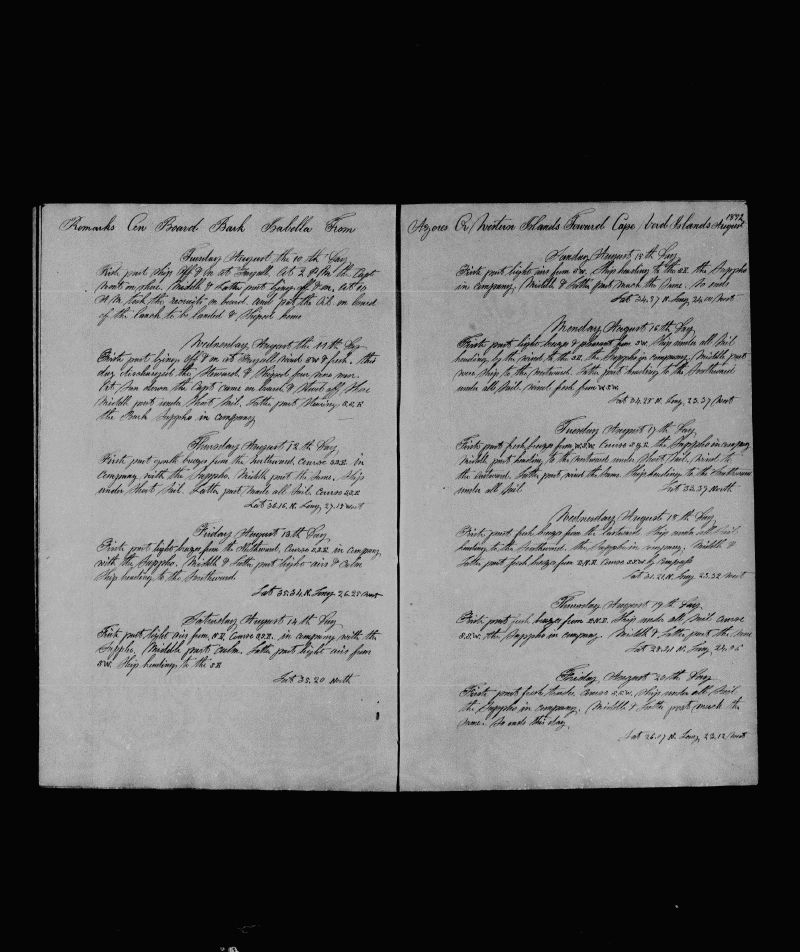 Remarks On Board Bark Isabella From
Tuesday August the 10 th Day
First part Ship Off & On at Fayall. At 2 P.M. the Capt
went on shore. Middle & Latter part lying off & on. At 10
A.M. took the recruits on board and put the Oil on board
of the launch to be landed & Shiped home
Wednesday August the 11 th Day
First part lying off & on at Fayall wind S.W. & fresh. this
day discharged the Steward & Shipped four new men.
At Sun down the Capt came on board & Stood off Shore
Middle part under Short Sail. Latter part Steering S.S.E
the Bark Sappho in company
Thursday August 12 th Day
First part gentle breeze from the northward. Course S.S.E. in
company with the Sappho. Middle part the Same. Ship
under Short Sail. Latter part Made all Sail. Course S.S.E
Lat 36.16 N. Long. 27.18 West
Friday August 13 th Day
First part light breeze from the Northward. Course S.S.E. in company
with the Sappho. Middle & Latter part light airs & Calm
Ship heading to the Southward.
Lat 35.34 N. Long. 26.25 West
Saturday August 14 th Day
First part light airs from N.E. Course S.S.E. in company with the
Sappho. Middle part calm. Latter part light airs from
S.W. Ship heading to the SE
Lat 35.20 North
Azores Or Western Islands Toward Cape Verd Islands August
Sunday August 15 th Day
First part light airs from S.W. Ship heading to the S.E. the Sappho
in company. Middle & Latter part Much the Same. So ends
Lat 34.37 N. Long. West
Monday August 16 th Day
First part light breeze & pleasant from S.W. Ship under all Sail
heading by the wind to the S.E. the Sappho in company. Middle part
wore Ship to the westward. Latter part heading to the Southward
under all Sail. wind fresh from W.S.W.
Lat 34.25 N. Long. 23.37 West
Tuesday August 17 th Day
First part fresh breeze from W.S.W. Course the Sappho in company
Middle part heading to the westward under Short Sail. Wind to
the Eastward. Latter part wind the Same. Ship heading to the Southward
under all Sail. Lat 33.37 North
Wednesday August 18 th Day
First part fresh breeze from the Eastward. Ship under all Sail
heading to the Southward. the Sappho in company. Middle &
Latter part fresh breeze from E.N.E. Course S.S.W. by compass
Lat 31.21 N. Long 23.32 West
Thursday August 19 th Day
First part fresh breeze from E.N.E. Ship under all Sail Course
S.S.W. the Sappho in company. Middle & Latter part the Same
Lat 28.41 N. Long 22.06
Friday August 20 th Day
First part fresh trades. Course S.S.W. Ship under all Sail
the Sappho in company. Middle & Latter part much the
Same. So ends this day.
Lat 26.07 N. Long 22.12 West